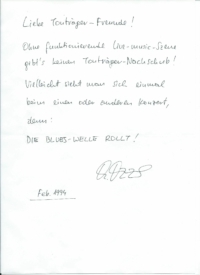 Liebe Tonträger-Freunde!
Ohne funktionierende Live-music-Scene
gibt's keinen Tonträger-Nachschub!
Vielleicht sieht man sich einmal
beim einen oder anderen Konzert,
denn:
DIE BLUES-WELLE ROLLT!
Feb. 1994